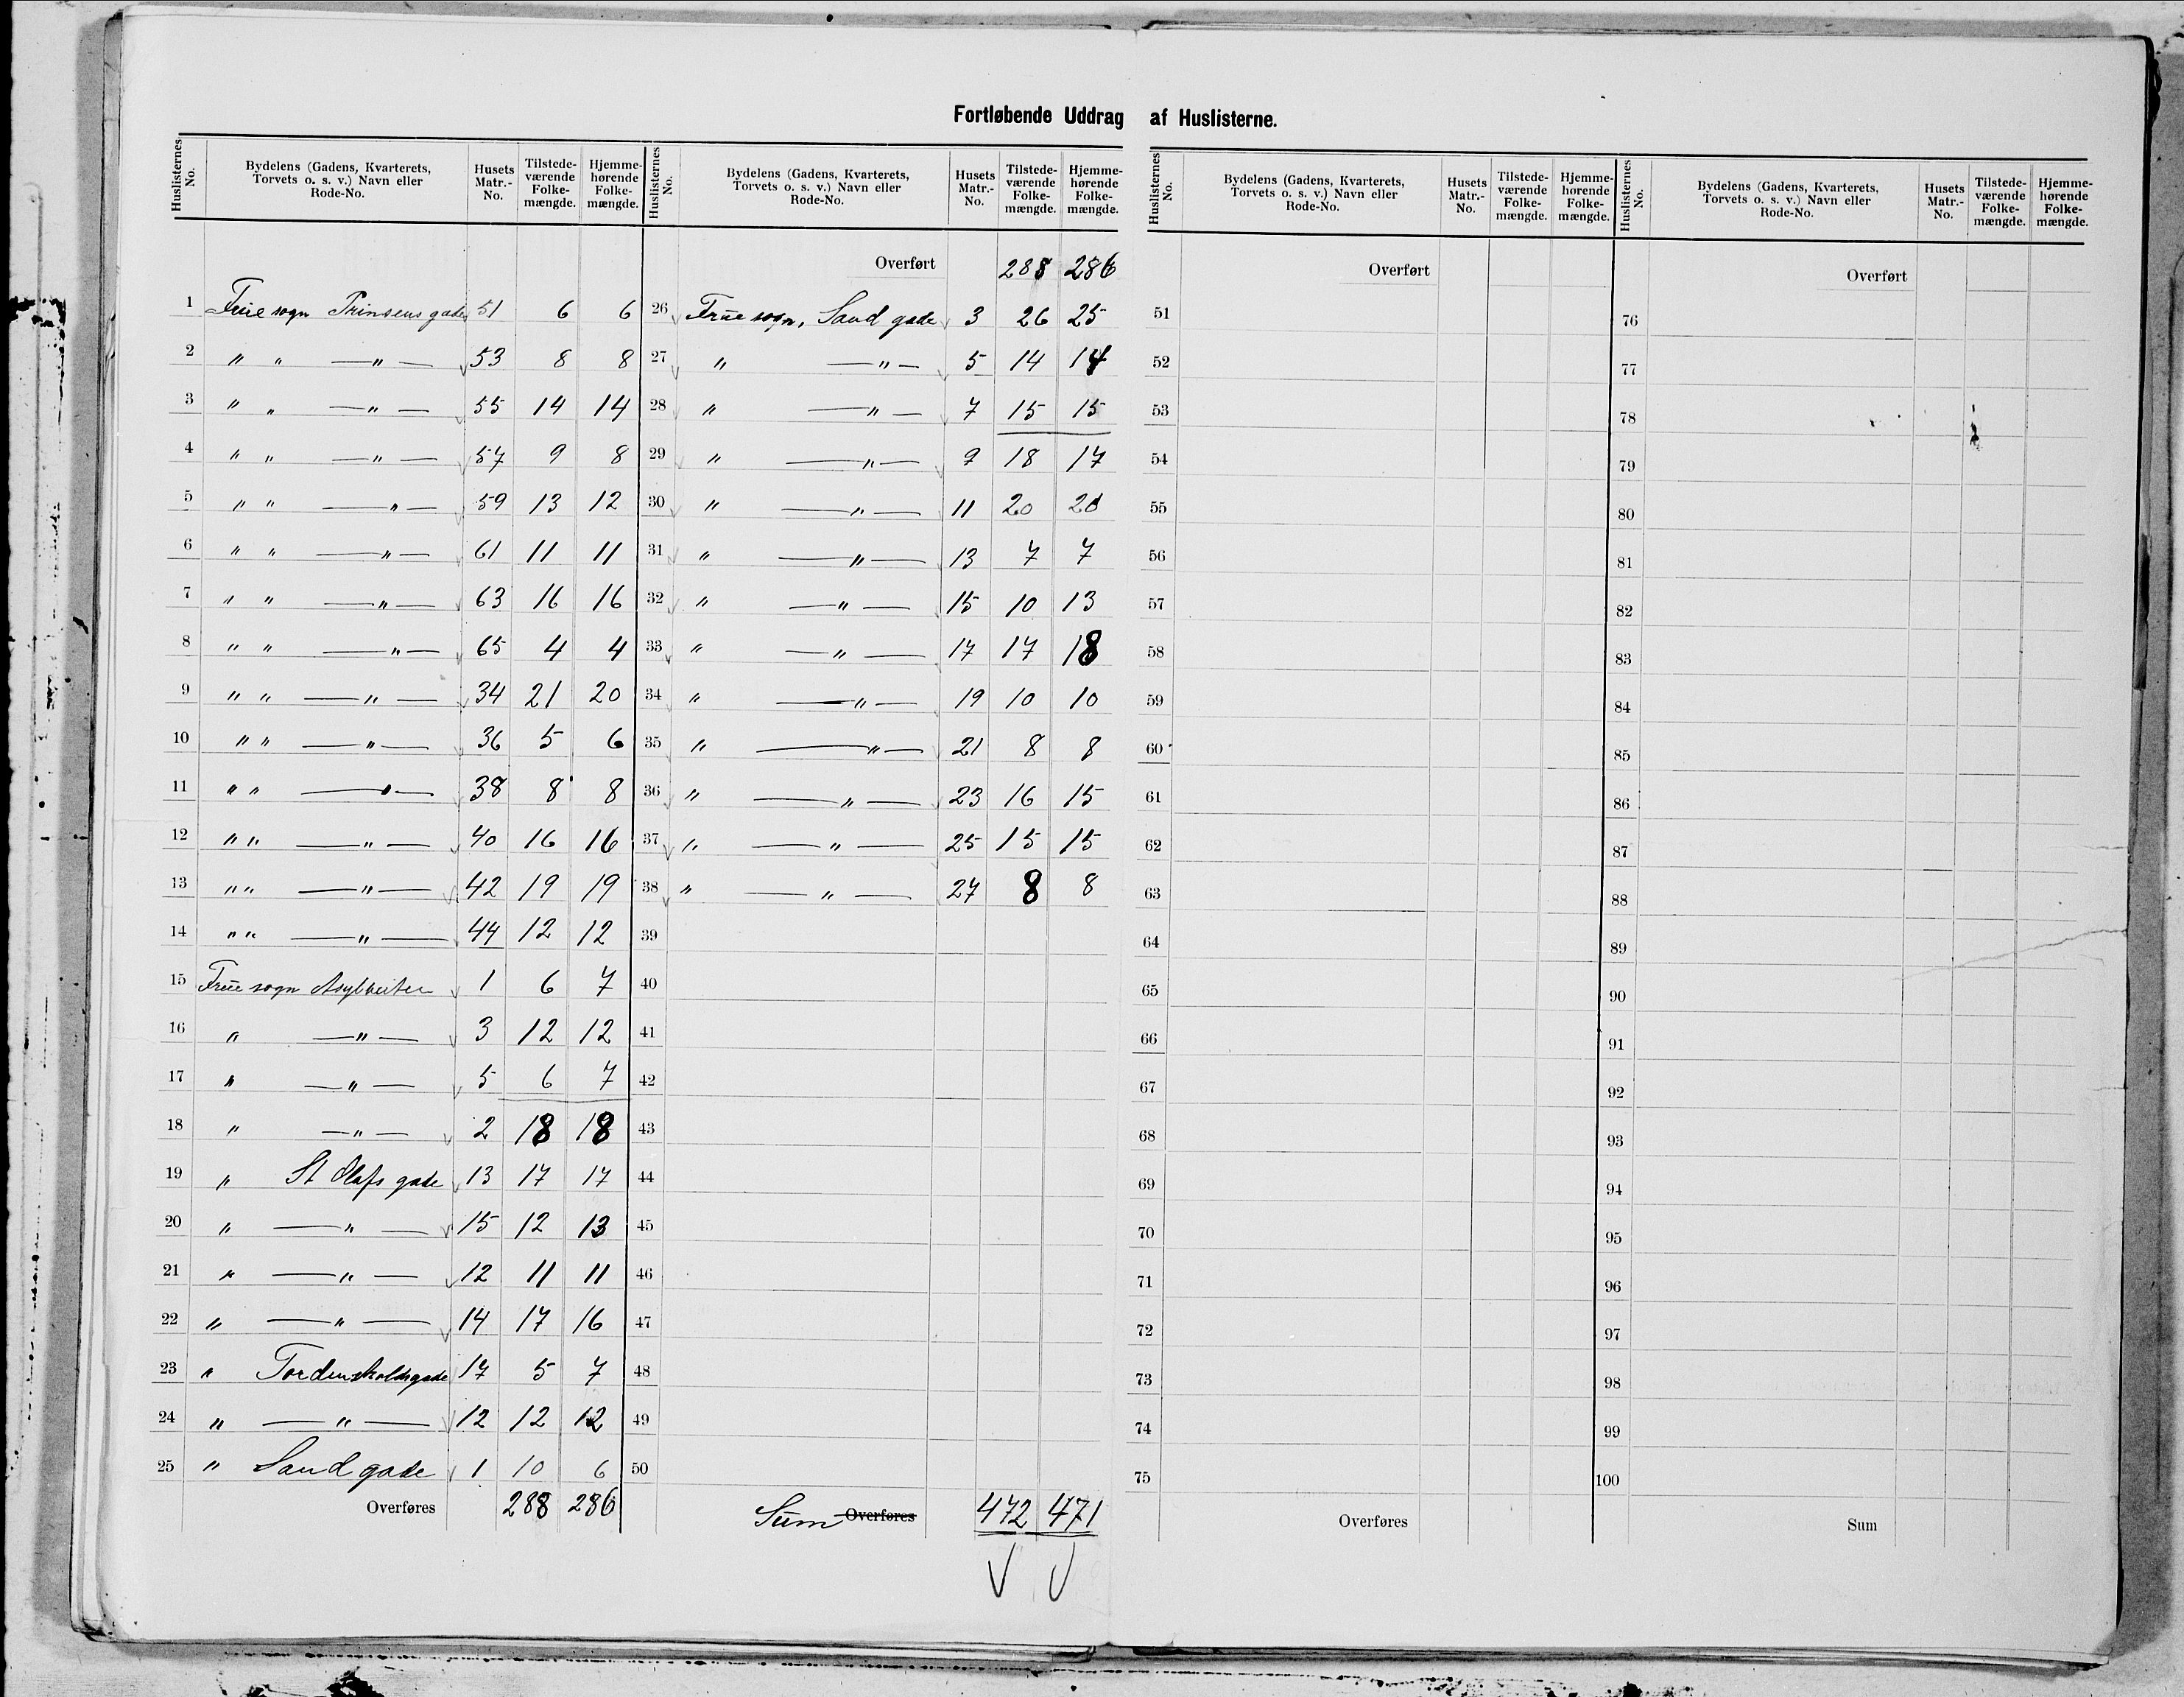 Fortløbende Uddrag af Huslisterne.
Huslisternes No. Bydelens (Gadens, Kvarterets, Torvets o. s. v.) Navn eller Rode-No. Husets Matr.-No. Tilstede-værende Folke-mængde. Hjemme-hørende Folke-mængde.
1 Frue sogn Prinsens gade 51 6 6
2 " " —"— 53 8 8
3 " " —"— 55 14 14
4 " " —"— 57 9 8
5 " " —"— 59 13 12
6 " " —"— 61 11 11
7 " " —"— 63 16 16
8 " " —"— 65 4 4
9 " " —"— 34 21 20
10 " " —"— 36 5 6
11 " " —"— 38 8 8
12 " " —"— 40 16 16
13 " " —"— 42 19 19
14 " " —"— 44 12 12
15 Frue sogn Asylveiten 1 6 7
16 " —"— 3 12 12
17 " —"— 5 6 7
18 " —"— 2 18 18
19 " St Olafs gade 13 17 17
20 " —"— 15 12 13
21 " —"— 12 11 11
22 " —"— 14 17 16
23 " Tordenskoldsgade 17 5 7
24 " —"— 12 12 12
25 " Sand gade 1 10 6
Overføres 288 286
Huslisternes No. Bydelens (Gadens, Kvarterets, Torvets o. s. v.) Navn eller Rode-No. Husets Matr.-No. Tilstede-værende Folke-mængde. Hjemme-hørende Folke-mængde.
Overført 288 286
26 Frue sogn, Sand gade 3 26 25
27 " —"— 5 14 14
28 " —"— 7 15 15
29 " —"— 9 18 17
30 " —"— 11 20 20
31 " —"— 13 7 7
32 " —"— 15 10 13
33 " —"— 17 17 18
34 " —"— 19 10 10
35 " —"— 21 8 8
36 " —"— 23 16 15
37 " —"— 25 15 15
38 " —"— 27 8 8
39
40
41
42
43
44
45
46
47
48
49
50
Sum Overføres 472 471
Huslisternes No. Bydelens (Gadens, Kvarterets, Torvets o. s. v.) Navn eller Rode-No. Husets Matr.-No. Tilstede-værende Folke-mængde. Hjemme-hørende Folke-mængde.
Overført
51
52
53
54
55
56
57
58
59
60
61
62
63
64
65
66
67
68
69
70
71
72
73
74
75
Overføres
Huslisternes No. Bydelens (Gadens, Kvarterets, Torvets o. s. v.) Navn eller Rode-No. Husets Matr.-No. Tilstede-værende Folke-mængde. Hjemme-hørende Folke-mængde.
Overført
76
77
78
79
80
81
82
83
84
85
86
87
88
89
90
91
92
93
94
95
96
97
98
99
100
Sum